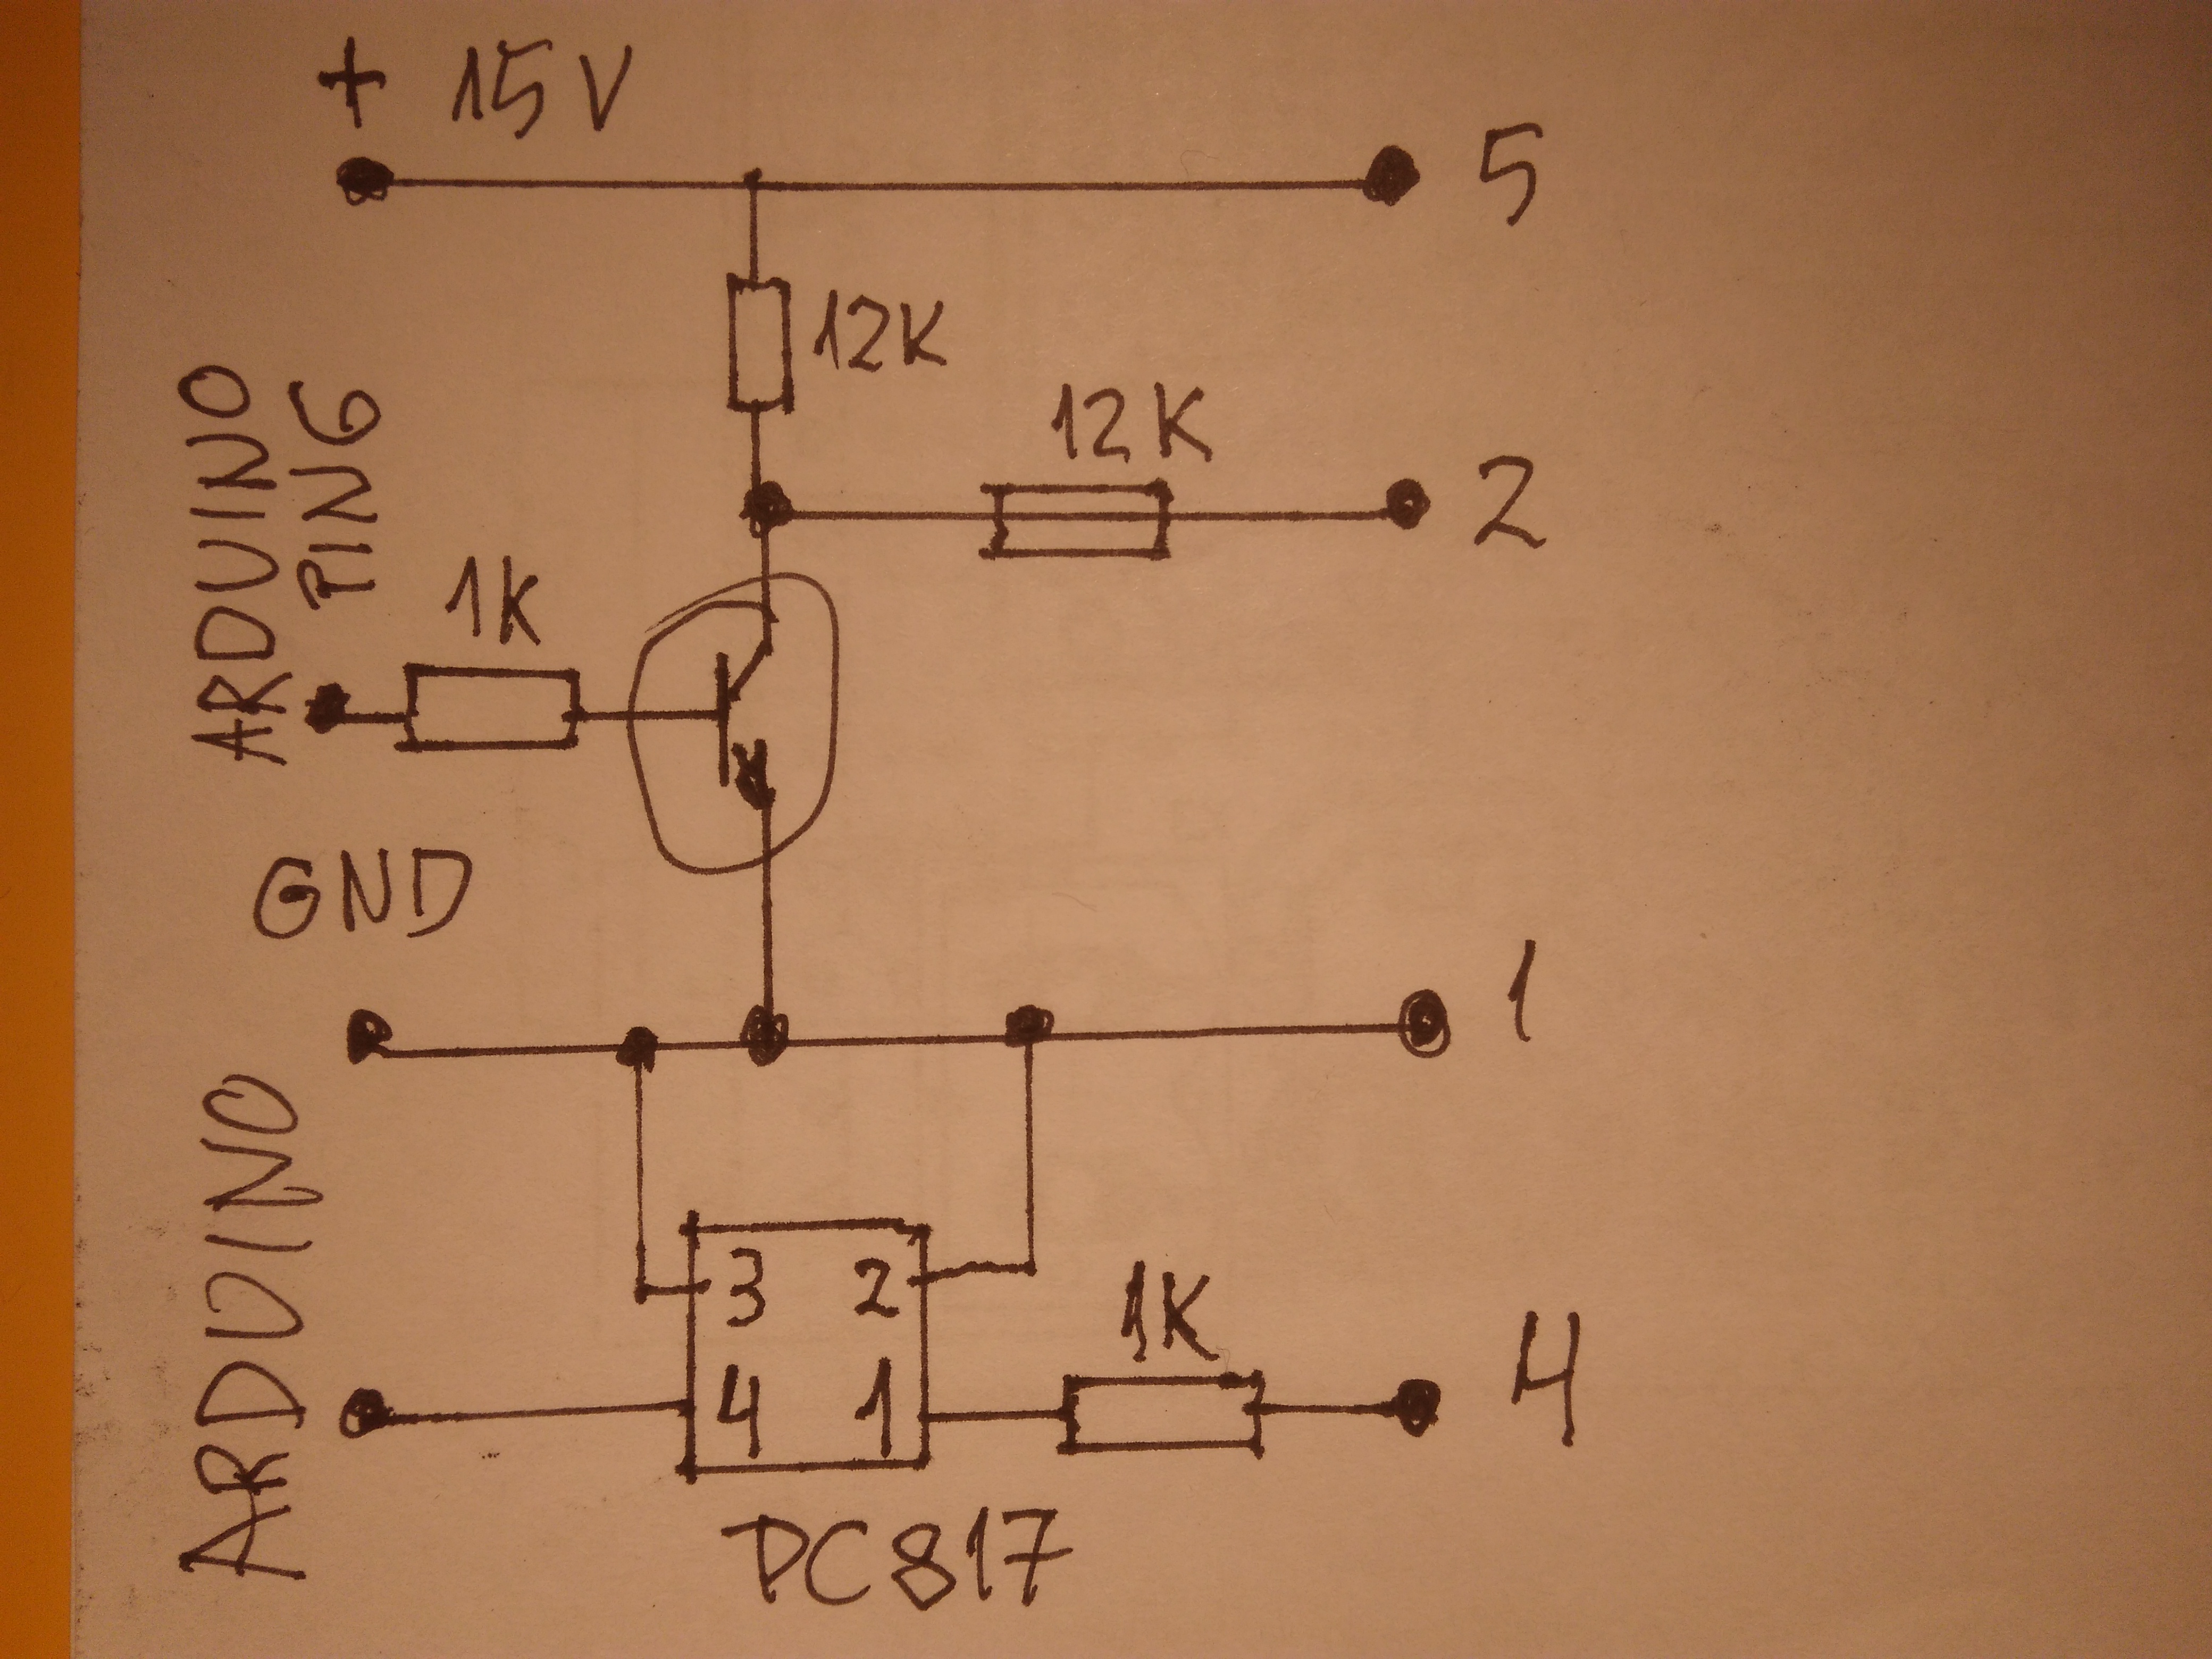 + 15V
5
12K
12K
2
ARDUINO
PIN6
1K
GND
1
ARDUINO
3 2
4 1
1K
4
PC817